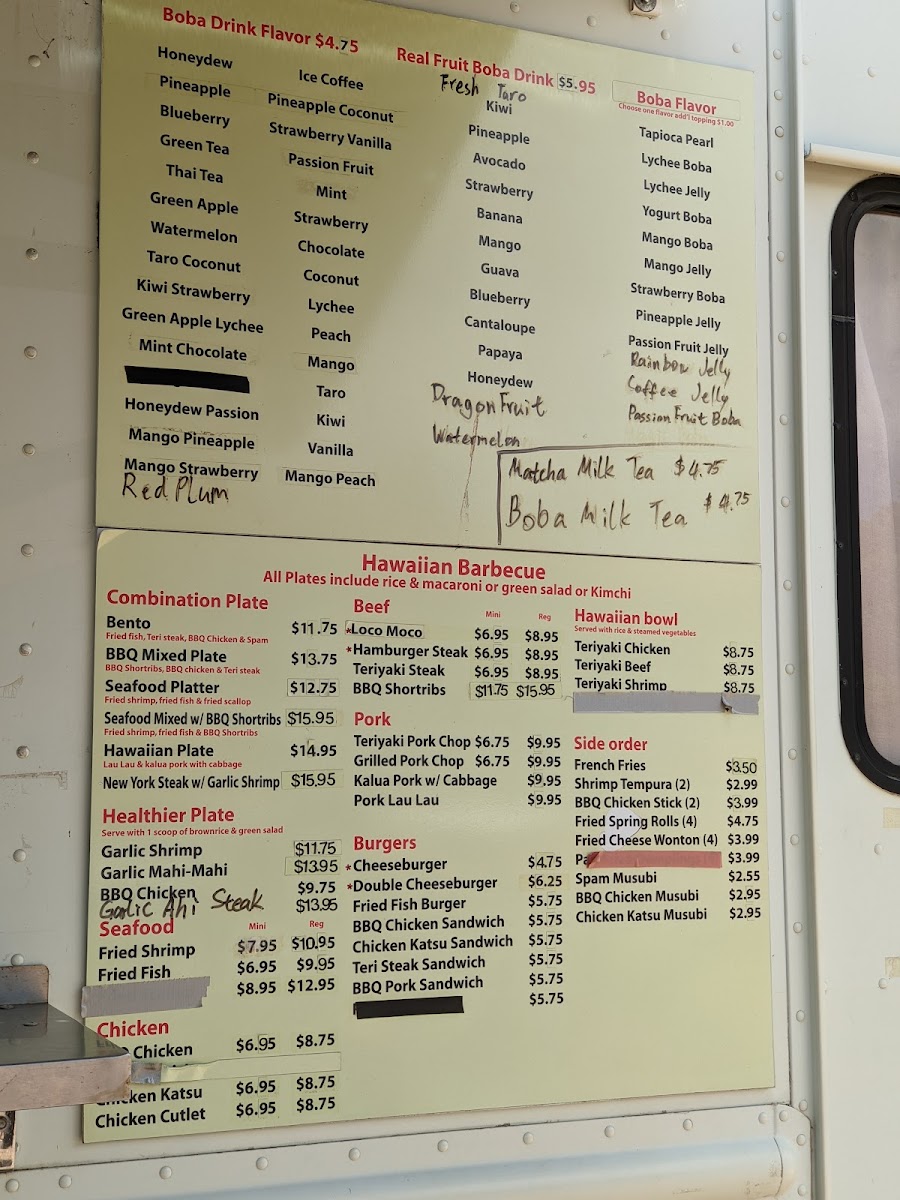 Boba Drink Flavor $4.75
Honeydew
Pineapple
Blueberry
Green Tea
Thai Tea
Green Apple
Watermelon
Taro Coconut
Kiwi Strawberry
Green Apple Lychee
Mint Chocolate
Honeydew Passion
Mango Pineapple
Mango Strawberry
Red Plum
Ice Coffee
Pineapple Coconut
Strawberry Vanilla
Passion Fruit
Mint
Strawberry
Chocolate
Coconut
Lychee
Peach
Mango
Taro
Kiwi
Vanilla
Mango Peach
Real Fruit Boba Drink $5.95
Fresh Taro
Kiwi
Pineapple
Avocado
Strawberry
Banana
Mango
Guava
Blueberry
Cantaloupe
Papaya
Honeydew
Dragon Fruit
Watermelon
Boba Flavor
Choose one flavor add'l topping $1.00
Tapioca Pearl
Lychee Boba
Lychee Jelly
Yogurt Boba
Mango Boba
Mango Jelly
Strawberry Boba
Pineapple Jelly
Passion Fruit Jelly
Rainbow Jelly
Coffee Jelly
Passion Fruit Boba
Matcha Milk Tea $4.75
Boba Milk Tea $4.75
Hawaiian Barbecue
All Plates include rice & macaroni or green salad or Kimchi
Combination Plate
Bento $11.75
Fried fish, Teri steak, BBQ Chicken & Spam
BBQ Mixed Plate $13.75
BBQ Shortribs, BBQ chicken & Teri steak
Seafood Platter $12.75
Fried shrimp, fried fish & fried scallop
Seafood Mixed w/ BBQ Shortribs $15.95
Fried shrimp, fried fish & BBQ Shortribs
Hawaiian Plate $14.95
Lau Lau & kalua pork with cabbage
New York Steak w/ Garlic Shrimp $15.95
Healthier Plate
Serve with 1 scoop of brownrice & green salad
Garlic Shrimp $11.75
Garlic Mahi-Mahi $13.95
BBQ Chicken $9.75
Garlic Ahi Steak $13.95
Seafood Mini Reg
Fried Shrimp $7.95 $10.95
Fried Fish $6.95 $9.95
$8.95 $12.95
Chicken
Chicken $6.95 $8.75
Chicken Katsu $6.95 $8.75
Chicken Cutlet $6.95 $8.75
Beef Mini Reg
*Loco Moco $6.95 $8.95
*Hamburger Steak $6.95 $8.95
Teriyaki Steak $6.95 $8.95
BBQ Shortribs $11.75 $15.95
Pork
Teriyaki Pork Chop $6.75 $9.95
Grilled Pork Chop $6.75 $9.95
Kalua Pork w/ Cabbage $9.95
Pork Lau Lau $9.95
Burgers
*Cheeseburger $4.75
*Double Cheeseburger $6.25
Fried Fish Burger $5.75
BBQ Chicken Sandwich $5.75
Chicken Katsu Sandwich $5.75
Teri Steak Sandwich $5.75
BBQ Pork Sandwich $5.75
$5.75
Hawaiian bowl
Served with rice & steamed vegetables
Teriyaki Chicken $8.75
Teriyaki Beef $8.75
Teriyaki Shrimp $8.75
Side order
French Fries $3.50
Shrimp Tempura (2) $2.99
BBQ Chicken Stick (2) $3.99
Fried Spring Rolls (4) $4.75
Fried Cheese Wonton (4) $3.99
$3.99
Spam Musubi $2.55
BBQ Chicken Musubi $2.95
Chicken Katsu Musubi $2.95